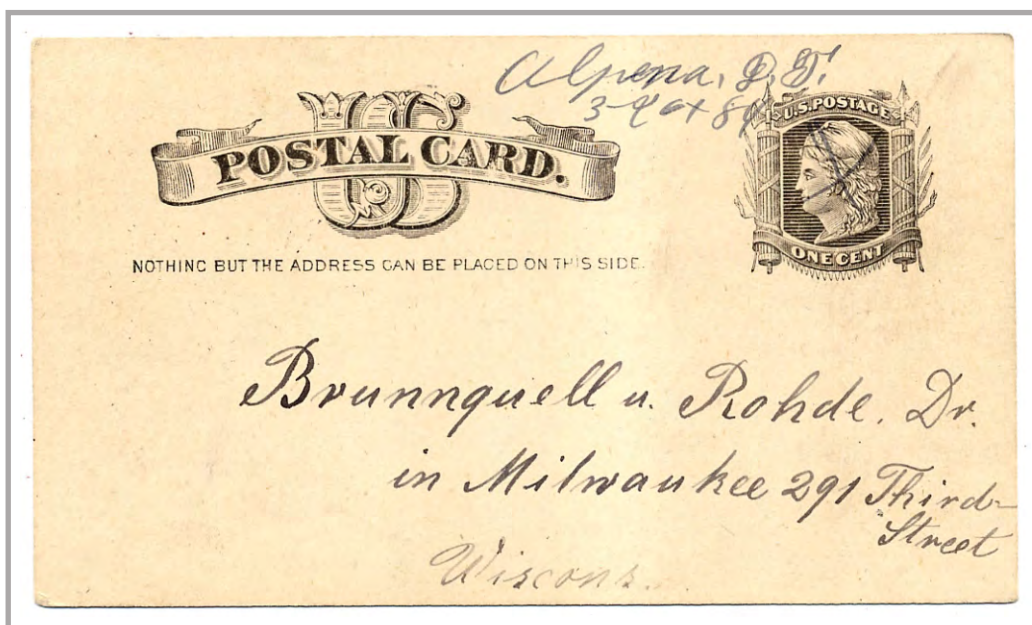 Alpena, D.T.
3-Oct 84
U.S. POSTAGE
US
POSTAL CARD.
ONE CENT
NOTHING BUT THE ADDRESS CAN BE PLACED ON THIS SIDE.
Brunnquell u. Rohde. Dr.
in Milwaukee 291 Third-
Street
Wiscons.